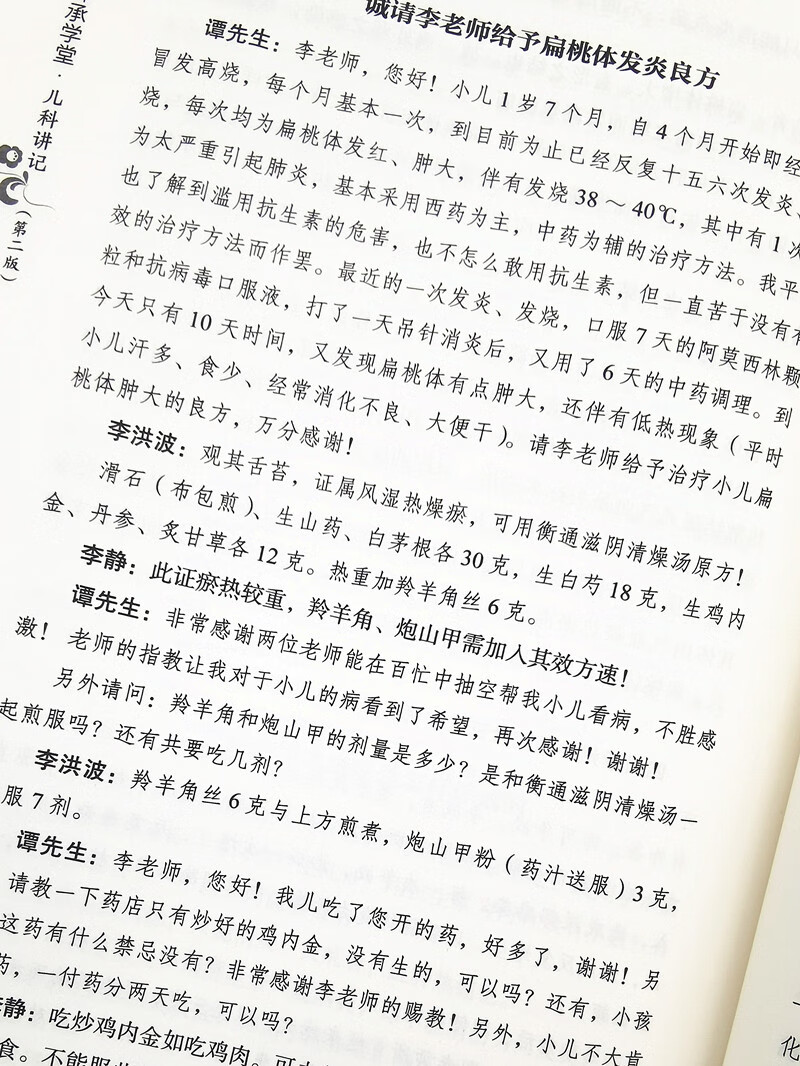 承学堂·儿科讲记
（第二版）
诚请李老师给予扁桃体发炎良方
谭先生：李老师，您好！小儿1岁7个月，自4个月开始即经
冒发高烧，每个月基本一次，到目前为止已经反复十五六次发炎、
烧，每次均为扁桃体发红、肿大，伴有发烧38～40℃，其中有1次
为太严重引起肺炎，基本采用西药为主，中药为辅的治疗方法。我平
也了解到滥用抗生素的危害，也不怎么敢用抗生素，但一直苦于没有有
效的治疗方法而作罢。最近的一次发炎、发烧，口服7天的阿莫西林颗
粒和抗病毒口服液，打了一天吊针消炎后，又用了6天的中药调理。到
今天只有10天时间，又发现扁桃体有点肿大，还伴有低热现象（平时
小儿汗多、食少、经常消化不良、大便干）。请李老师给予治疗小儿扁
桃体肿大的良方，万分感谢！
李洪波：观其舌苔，证属风湿热燥瘀，可用衡通滋阴清燥汤原方！
滑石（布包煎）、生山药、白茅根各30克，生白芍18克，生鸡内
金、丹参、炙甘草各12克。热重加羚羊角丝6克。
李静：此证瘀热较重，羚羊角、炮山甲需加入其效方速！
谭先生：非常感谢两位老师能在百忙中抽空帮我小儿看病，不胜感
激！老师的指教让我对于小儿的病看到了希望，再次感谢！谢谢！
另外请问：羚羊角和炮山甲的剂量是多少？是和衡通滋阴清燥汤一
起煎服吗？还有共要吃几剂？
李洪波：羚羊角丝6克与上方煎煮，炮山甲粉（药汁送服）3克，
服7剂。
谭先生：李老师，您好！我儿吃了您开的药，好多了，谢谢！另
请教一下药店只有炒好的鸡内金，没有生的，可以吗？还有，小孩
这药有什么禁忌没有？非常感谢李老师的赐教！另外，小儿不大肯
药，一付药分两天吃，可以吗？
李静：吃炒鸡内金如吃鸡肉。
化